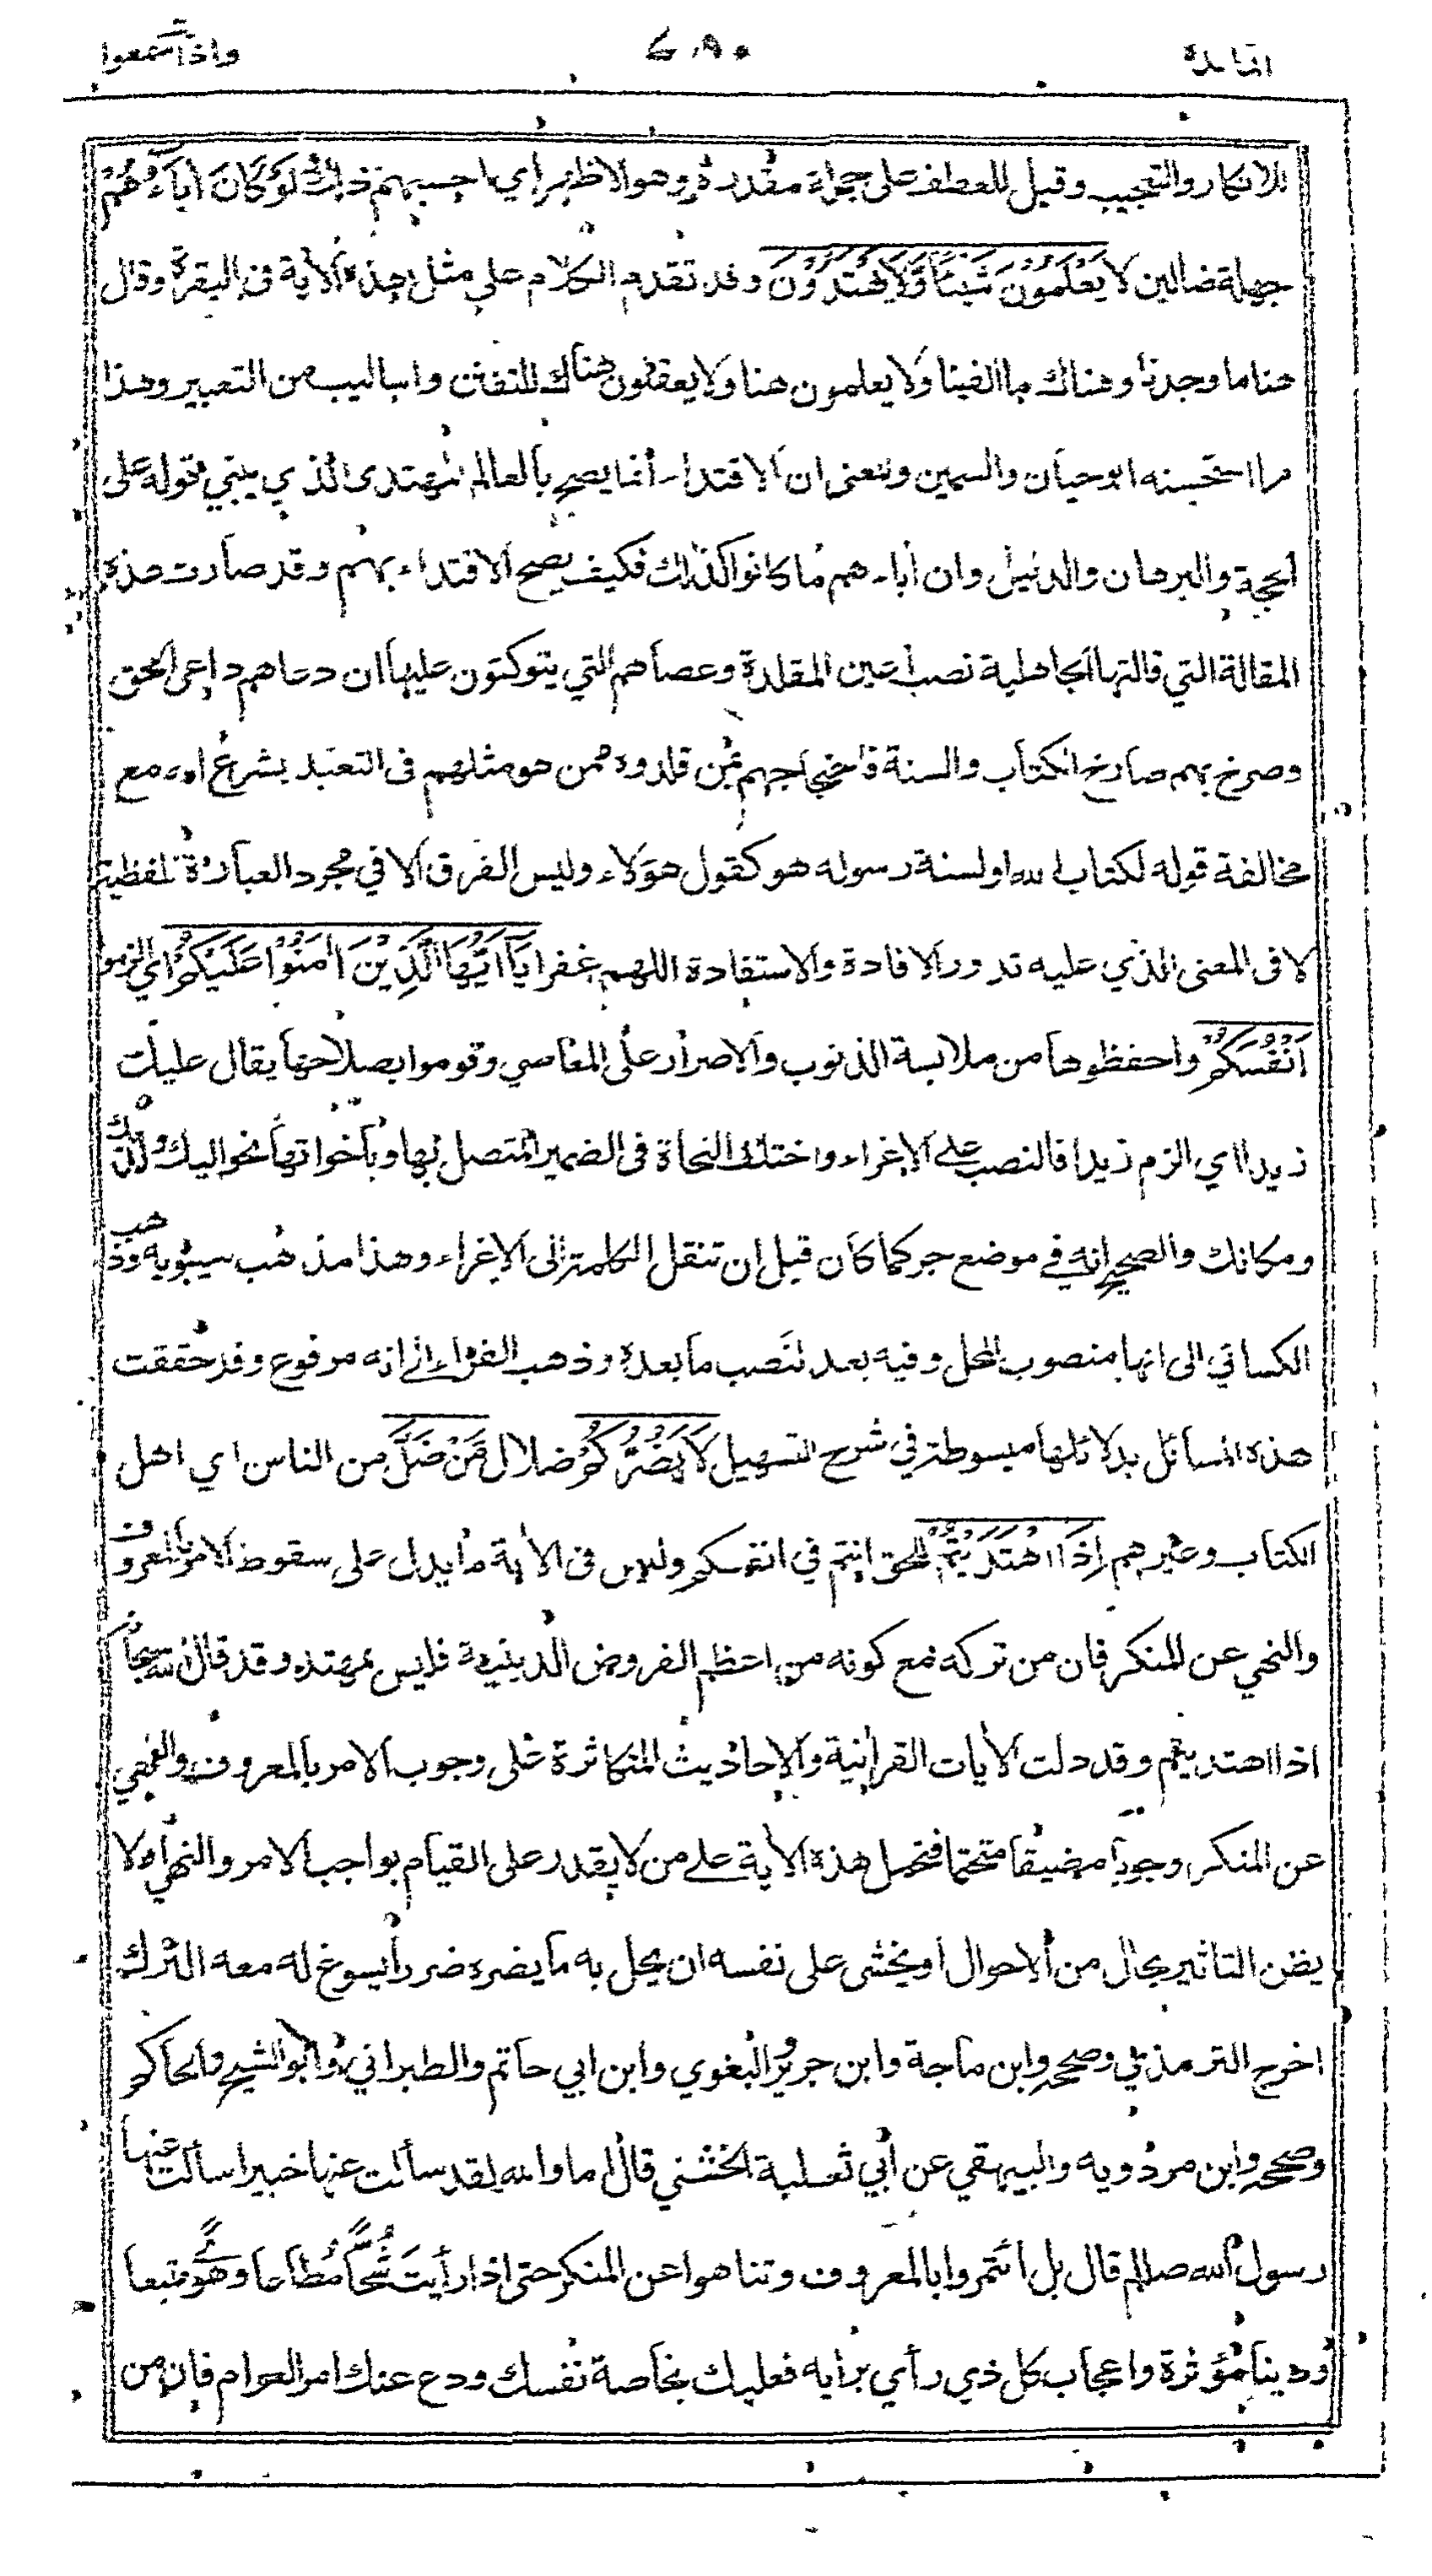 المائدة
واذا سمعوا
للانكار والتعجيب وقيل للعطف على جملة مقدرة وهو الاظهر أي احسبهم ذلك لَوْ كَانَ اٰبَآءُهُمْ
جهلة ضالين لَا يَعْلَمُوْنَ شَيْئًا وَّلَا يَهْتَدُوْنَ وقد تقدم الكلام على مثل هذه الآية في البقرة وقال
هنا ما وجدنا وهناك ما الفينا ولا يعلمون هنا ولا يعقلون هناك للتفنن واساليب من التعبير وهذا
مما استحسنه ابو حيان والسمين والمعنى ان الاقتداء انما يصح بالعالم المهتدى الذي يبني قوله على
الحجة والبرهان والدليل وان أباءهم ما كانوا كذلك فكيف يصح الاقتداء بهم وقد صارت هذه
المقالة التي قالتها الجاهلية نصب عين المقلدة وعصاهم التي يتوكئون عليها ان دعاهم داعي الحق
وصرخ بهم صارخ الكتاب والسنة فاحتجاجهم بمن قلدوه ممن هو مثلهم في التعبد بشرع الله مع
مخالفة قوله لكتاب الله او لسنة رسوله هو كقول هؤلاء وليس الفرق الا في مجرد العبارة اللفظية
لا في المعنى الذي عليه تدور الافادة والاستفادة اللهم غفرا يَآ اَيُّهَا الَّذِيْنَ اٰمَنُوْا عَلَيْكُمْ اي الزموا
اَنْفُسَكُمْ واحفظوها من ملابسة الذنوب والاصرار على المعاصي وقوموا بصلاحها يقال عليك
زيدا اي الزم زيدا فالنصب على الاغراء واختلف النحاة في الضمير المتصل بها وبأخواتها نحو اليك ولديك
ومكانك والصحيح انه في موضع جر كما كان قبل ان تنقل الكلمة الى الاغراء وهذا مذهب سيبويه وذهب
الكسائي الى انها منصوب المحل وفيه بعد لنصب ما بعده وذهب الفراء الى انه مرفوع وقد حققت
هذه المسائل بدلائلها مبسوطة في شرح التسهيل لَا يَضُرُّكُمْ ضلال مَّنْ ضَلَّ من الناس اي اهل
الكتاب وغيرهم اِذَا اهْتَدَيْتُمْ للحق انتم في انفسكم وليس في الأية ما يدل على سقوط الامر بالمعروف
والنهي عن المنكر فان من تركه مع كونه من اعظم الفروض الدينية فليس بمهتد وقد قال الله سبحانه
اذا اهتديتم وقد دلت الأيات القرانية والاحاديث المتكاثرة على وجوب الامر بالمعروف والنهي
عن المنكر وجوبا مضيقا متحتما فتحمل هذه الأية على من لا يقدر على القيام بواجب الامر والنهي او لا
يظن التاثير بحال من الاحوال او يخشى على نفسه ان يحل به ما يضره ضررا يسوغ له معه الترك
اخرج الترمذي وصححه وابن ماجة وابن جرير والبغوي وابن ابي حاتم والطبراني وأبو الشيخ والحاكم
وصححه وابن مردويه والبيهقي عن أبي ثعلبة الخشني قال اما والله لقد سألت عنها خبيرا سألت عنها
رسول الله صلالم قال بل أئتمروا بالمعروف وتناهوا عن المنكر حتى اذا رأيت شُحًّا مُطاعا وهوًى متبعا
ودينا مؤثرة واعجاب كل ذي رأي برأيه فعليك بخاصة نفسك ودع عنك امر العوام فان من